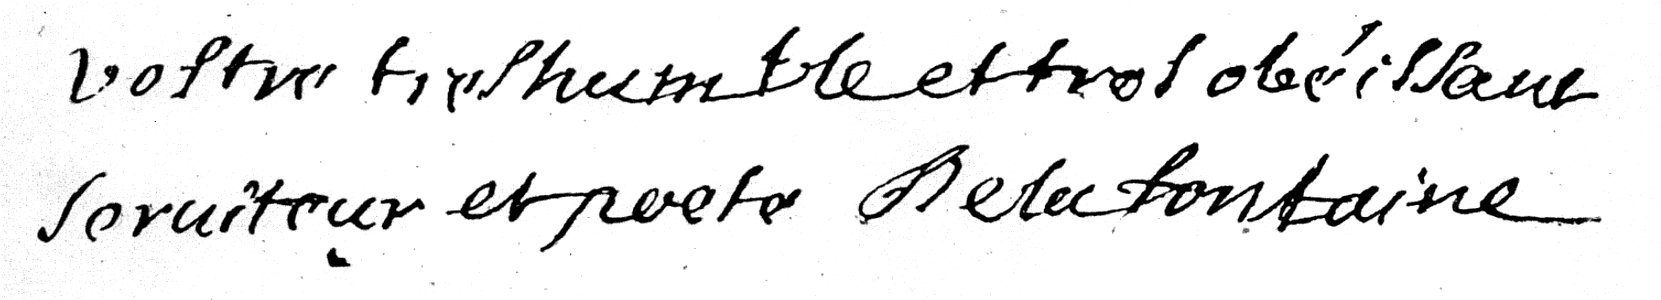 vostre treshumble et tres obéissant
serviteur et poete De la fontaine